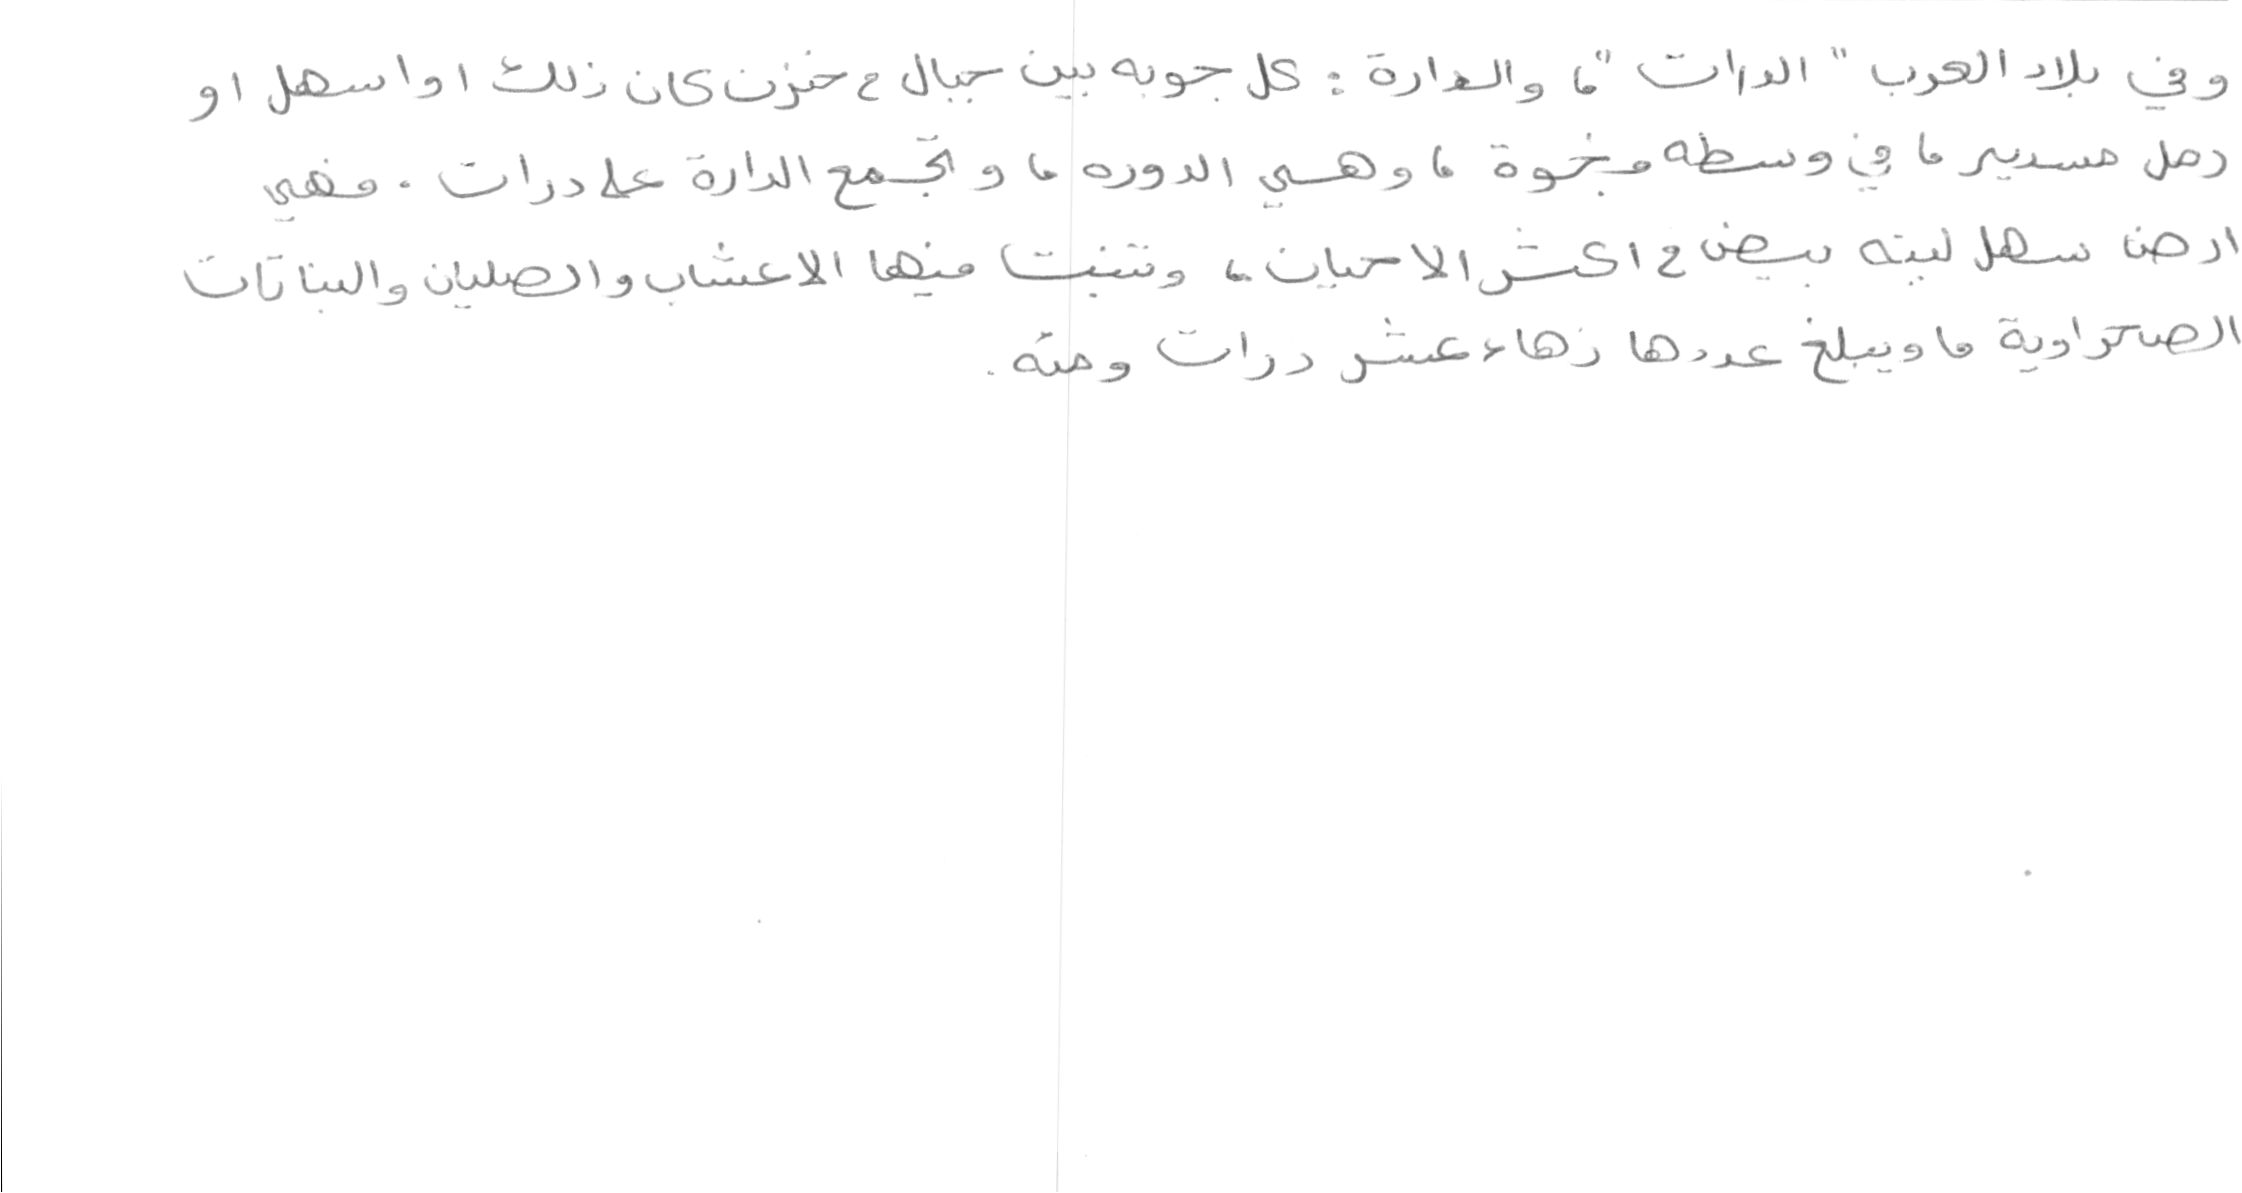 وفي بلاد العرب "الدرات"، والدارة: كل جوبه بين جبال في حزن كان ذلك او سهل او
رمل مسدير، في وسطه فجوة، وهي الدوره، وتجمع الدارة على درات. فهي
ارض سهل لينه بيض في اكثر الاحيان، وتنبت فيها الاعشاب والصليان والنباتات
الصحراوية، ويبلغ عددها زهاء عشر درات ومئه.